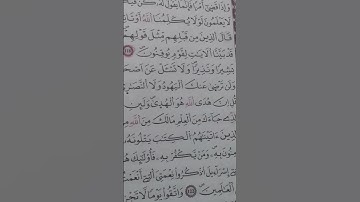 وَإِذَا قَضَىٰ أَمْرًا فَإِنَّمَا يَقُولُ لَهُ كُن فَيَكُ
لَا يَعْلَمُونَ لَوْلَا يُكَلِّمُنَا اللَّهُ أَوْ تَا
قَالَ الَّذِينَ مِن قَبْلِهِم مِّثْلَ قَوْلِهِمْ
قَدْ بَيَّنَّا الْآيَاتِ لِقَوْمٍ يُوقِنُونَ
بَشِيرًا وَنَذِيرًا وَلَا تَسْـَٔلْ عَنْ أَصْحَ
وَلَن تَرْضَىٰ عَنكَ الْيَهُودُ وَلَا النَّصَٰرَىٰ
إِنَّ هُدَى اللَّهِ هُوَ الْهُدَىٰ وَلَئِنِ
جَاءَكَ مِنَ الْعِلْمِ مَا لَكَ مِنَ اللَّهِ
ءَاتَيْنَٰهُمُ الْكِتَٰبَ يَتْلُونَهُ
بِهِ وَمَن يَكْفُرْ بِهِ فَأُوْلَٰئِكَ هُ
إِسْرَٰءِيلَ اذْكُرُوا نِعْمَتِيَ الَّتِي أَنْعَمْ
الْعَٰلَمِينَ وَاتَّقُوا يَوْمًا لَّا تَجْزِ